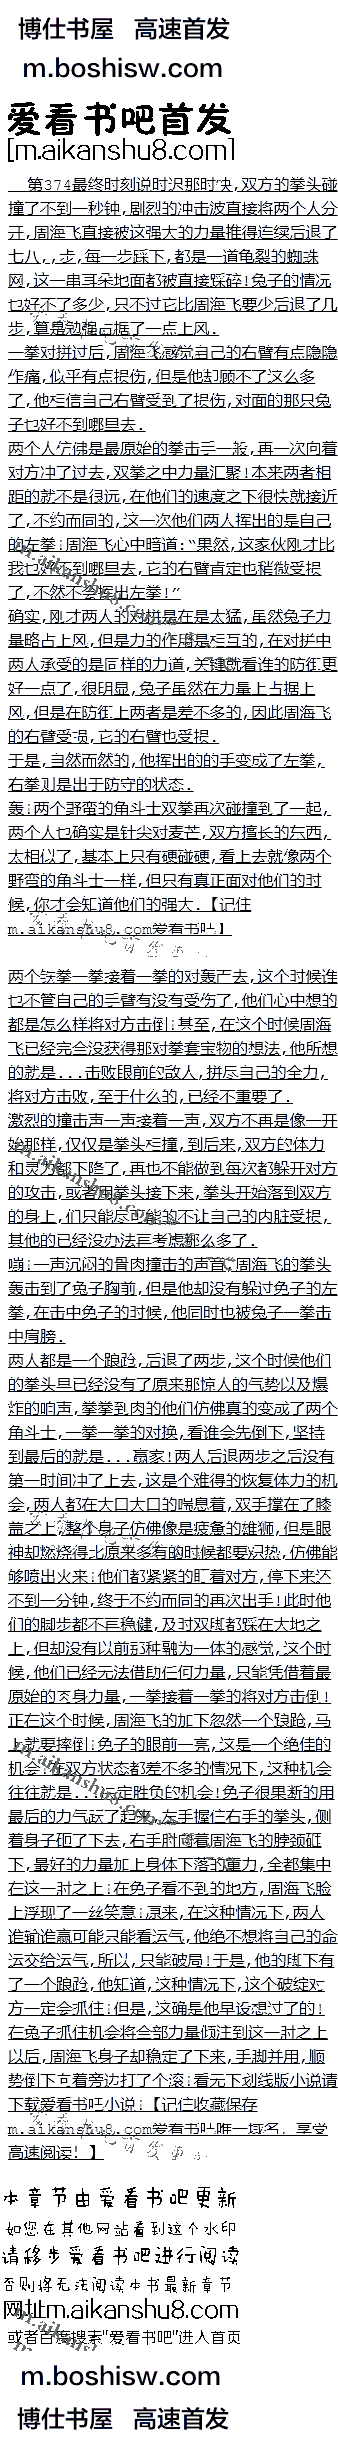 博仕书屋 高速首发
m.boshisw.com
爱看书吧首发
[m.aikanshu8.com]
第374最终时刻说时迟那时快,双方的拳头碰
撞了不到一秒钟,剧烈的冲击波直接将两个人分
开,周海飞直接被这强大的力量推得连续后退了
七八,,步,每一步踩下,都是一道龟裂的蜘蛛
网,这一串耳朵地面都被直接踩碎!兔子的情况
也好不了多少,只不过它比周海飞要少后退了几
步,算是勉强占据了一点上风.
一拳对拼过后,周海飞感觉自己的右臂有点隐隐
作痛,似乎有点损伤,但是他却顾不了这么多
了,他相信自己右臂受到了损伤,对面的那只兔
子也好不到哪里去.
两个人仿佛是最原始的拳击手一般,再一次向着
对方冲了过去,双拳之中力量汇聚!本来两者相
距的就不是很远,在他们的速度之下很快就接近
了,不约而同的,这一次他们两人挥出的是自己
的左拳!周海飞心中暗道:“果然,这家伙刚才比
我也好不到哪里去,它的右臂肯定也稍微受损
了,不然不会挥出左拳!”
确实,刚才两人的对拼是在是太猛,虽然兔子力
量略占上风,但是力的作用是相互的,在对拼中
两人承受的是同样的力道,关键就看谁的防御更
好一点了,很明显,兔子虽然在力量上占据上
风,但是在防御上两者是差不多的,因此周海飞
的右臂受损,它的右臂也受损.
于是,自然而然的,他挥出的的手变成了左拳,
右拳则是出于防守的状态.
轰!两个野蛮的角斗士双拳再次碰撞到了一起,
两个人也确实是针尖对麦芒,双方擅长的东西,
太相似了,基本上只有硬碰硬,看上去就像两个
野蛮的角斗士一样,但只有真正面对他们的时
候,你才会知道他们的强大.【记住
m.aikanshu8.com爱看书吧】
两个铁拳一拳接着一拳的对轰而去,这个时候谁
也不管自己的手臂有没有受伤了,他们心中想的
都是怎么样将对方击倒!甚至,在这个时候周海
飞已经完全没获得那对拳套宝物的想法,他所想
的就是...击败眼前的敌人,拼尽自己的全力,
将对方击败,至于什么的,已经不重要了.
激烈的撞击声一声接着一声,双方不再是像一开
始那样,仅仅是拳头相撞,到后来,双方的体力
和灵力都下降了,再也不能做到每次都躲开对方
的攻击,或者用拳头接下来,拳头开始落到双方
的身上,们只能尽可能的不让自己的内脏受损,
其他的已经没办法再考虑那么多了.
嘣!一声沉闷的骨肉撞击的声音,周海飞的拳头
轰击到了兔子胸前,但是他却没有躲过兔子的左
拳,在击中兔子的时候,他同时也被兔子一拳击
中肩膀.
两人都是一个踉跄,后退了两步,这个时候他们
的拳头早已经没有了原来那惊人的气势以及爆
炸的响声,拳拳到肉的他们仿佛真的变成了两个
角斗士,一拳一拳的对换,看谁会先倒下,坚持
到最后的就是...赢家!两人后退两步之后没有
第一时间冲了上去,这是个难得的恢复体力的机
会,两人都在大口大口的喘息着,双手撑在了膝
盖之上,整个身子仿佛像是疲惫的雄狮,但是眼
神却燃烧得比原来多有的时候都要炽热,仿佛能
够喷出火来!他们都紧紧的盯着对方,停下来还
不到一分钟,终于不约而同的再次出手!此时他
们的脚步都不再稳健,及时双脚都踩在大地之
上,但却没有以前那种融为一体的感觉,这个时
候,他们已经无法借助任何力量,只能凭借着最
原始的本身力量,一拳接着一拳的将对方击倒!
正在这个时候,周海飞的加下忽然一个踉跄,马
上就要摔倒!兔子的眼前一亮,这是一个绝佳的
机会!在双方状态都差不多的情况下,这种机会
往往就是...一定胜负的机会!兔子很果断的用
最后的力气跃了起来,左手握住右手的拳头,侧
着身子砸了下去,右手肘向着周海飞的脖颈砸
下,最好的力量加上身体下落的重力,全都集中
在这一肘之上!在兔子看不到的地方,周海飞脸
上浮现了一丝笑意!原来,在这种情况下,两人
谁输谁赢可能只能看运气,他绝不想将自己的命
运交给运气,所以,只能破局!于是,他的脚下有
了一个踉跄,他知道,这种情况下,这个破绽对
方一定会抓住!但是,这确是他早设想过了的!
在兔子抓住机会将全部力量倾注到这一肘之上
以后,周海飞身子却稳定了下来,手脚并用,顺
势倒下向着旁边打了个滚!看无下划线版小说请
下载爱看书吧小说!【记住收藏保存
m.aikanshu8.com爱看书吧唯一域名，享受
高速阅读！】
本章节由爱看书吧更新
如您在其他网站看到这个水印
请移步爱看书吧进行阅读
否则将无法阅读本书最新章节
网址m.aikanshu8.com
或者百度搜索"爱看书吧"进入首页
m.boshisw.com
博仕书屋 高速首发